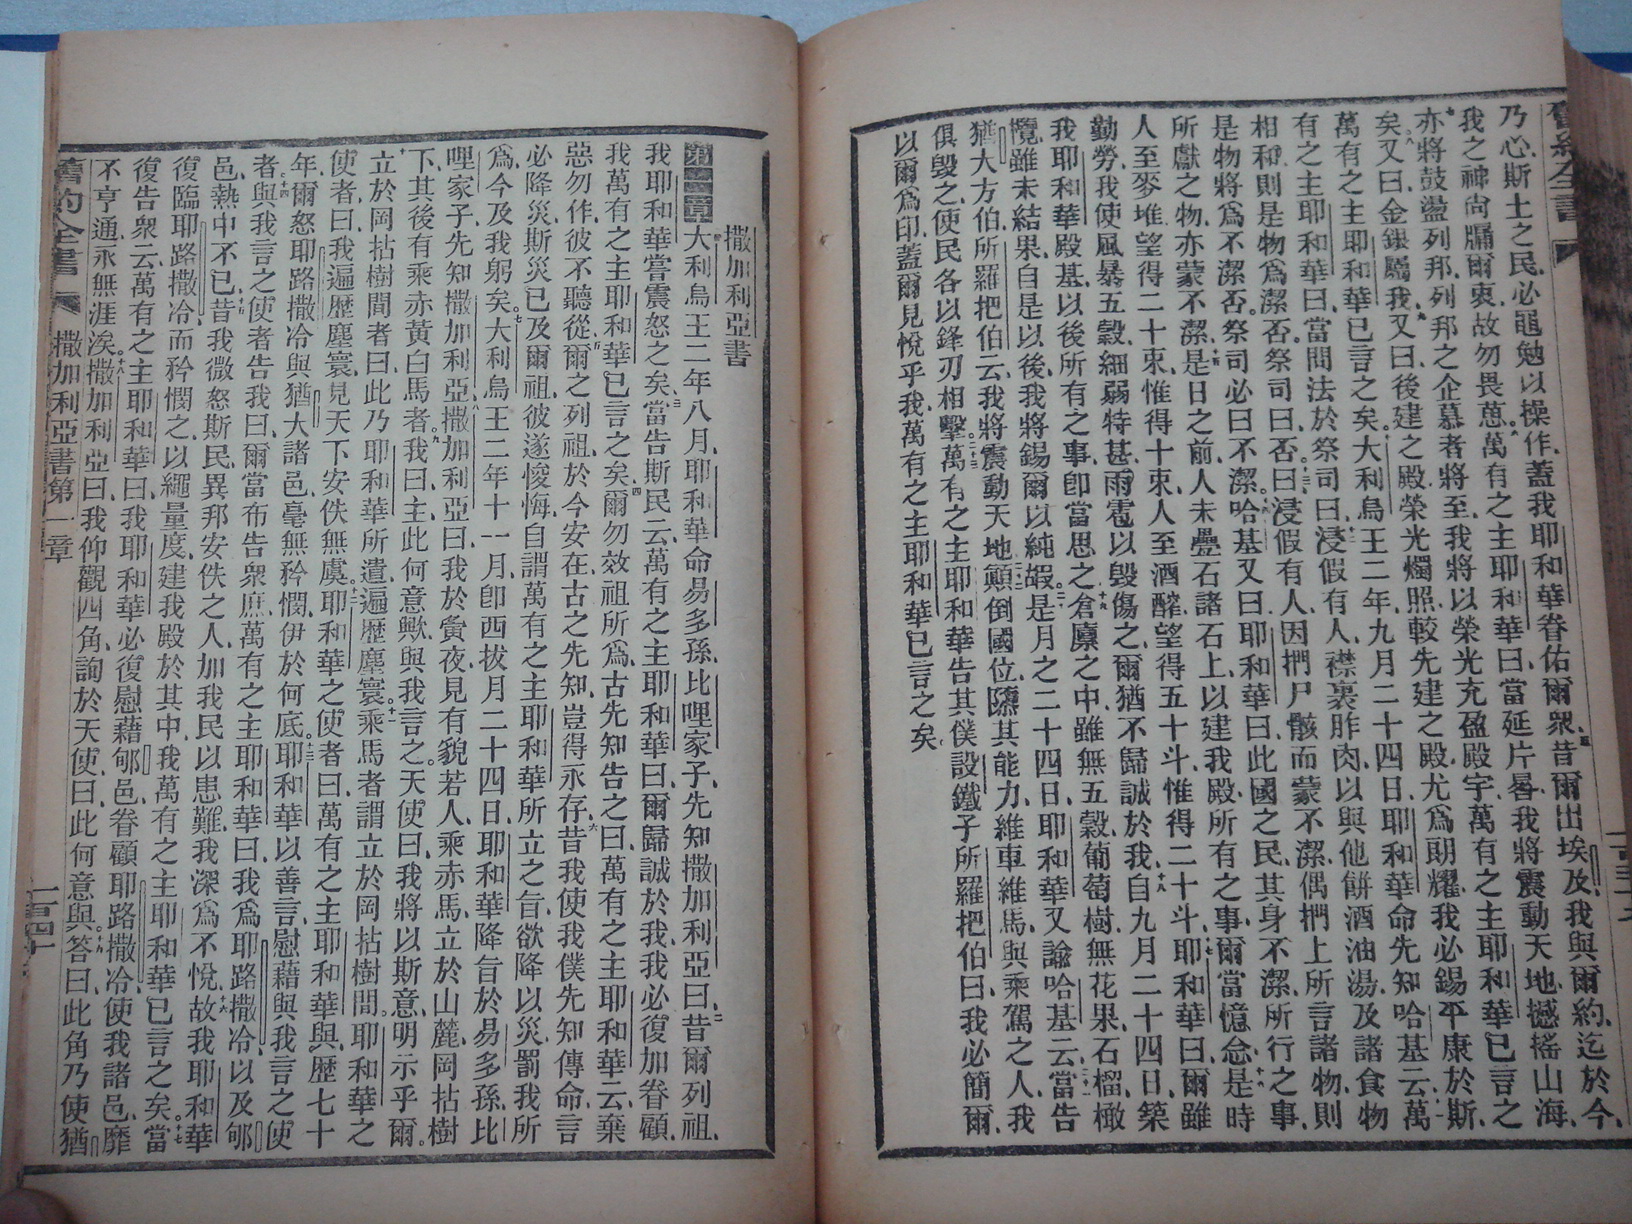 舊約全書
乃心斯土之民必黽勉以操作蓋我耶和華眷佑爾衆昔爾出埃及我與爾約迄於今
我之神尚牖爾衷故勿畏葸萬有之主耶和華曰當延片晷我將震動天地撼搖山海
亦將鼓盪列邦列邦之企慕者將至我將以榮光充盈殿宇萬有之主耶和華已言之
矣又曰金銀屬我又曰後建之殿榮光燭照較先建之殿尤爲朗耀我必錫平康於斯
萬有之主耶和華已言之矣大利烏王二年九月二十四日耶和華命先知哈基云萬
有之主耶和華曰當問法於祭司曰浸假有人襟裹胙肉以與他餅酒油湯及諸食物
相和則是物爲潔否祭司曰否曰浸假有人因捫尸骸而蒙不潔偶捫上所言諸物則
是物將爲不潔否祭司必曰不潔哈基又曰耶和華曰此國之民其身不潔所行之事
所獻之物亦蒙不潔是日之前人未疊石諸石上以建我殿所有之事爾當憶念是時
人至麥堆望得二十束惟得十束人至酒醡望得五十斗惟得二十斗耶和華曰爾雖
勤勞我使風暴五穀細弱特甚雨雹以毀傷之爾猶不歸誠於我自九月二十四日築
我耶和華殿基以後所有之事卽當思之倉廩之中雖無五穀葡萄樹無花果石榴橄
欖雖未結果自是以後我將錫爾以純嘏是月之二十四日耶和華又諭哈基云當告
猶大方伯所羅把伯云我將震動天地顚倒國位隳其能力維車維馬與乘駕之人我
俱毀之使民各以鋒刃相擊萬有之主耶和華告其僕設鐵子所羅把伯曰我必簡爾
以爾爲印蓋爾見悅乎我萬有之主耶和華已言之矣
撒加利亞書
第一章大利烏王二年八月耶和華命易多孫比哩家子先知撒加利亞曰昔爾列祖
我耶和華嘗震怒之矣當告斯民云萬有之主耶和華曰爾歸誠於我我必復加眷顧
我萬有之主耶和華已言之矣爾勿效祖所爲古先知告之曰萬有之主耶和華云棄
惡勿作彼不聽從爾之列祖於今安在古之先知豈得永存昔我使我僕先知傳命言
必降災斯災已及爾祖彼遂悛悔自謂萬有之主耶和華所立之旨欲降以災罰我所
爲今及我躬矣大利烏王二年十一月卽西拔月二十四日耶和華降旨於易多孫比
哩家子先知撒加利亞撒加利亞曰我於夤夜見有貌若人乘赤馬立於山麓岡拈樹
下其後有乘赤黃白馬者我曰主此何意歟與我言之天使曰我將以斯意明示乎爾
立於岡拈樹間者曰此乃耶和華所遣遍歷塵寰乘馬者謂立於岡拈樹間耶和華之
使者曰我遍歷塵寰見天下安佚無虞耶和華之使者曰萬有之主耶和華與歷七十
年爾怒耶路撒冷與猶大諸邑毫無矜憫伊於何底耶和華以善言慰藉與我言之使
者與我言之使者告我曰爾當布告衆庶萬有之主耶和華曰我爲耶路撒冷以及郇
邑熱中不已昔我微怒斯民異邦安佚之人加我民以患難我深爲不悅故我耶和華
復臨耶路撒冷而矜憫之以繩量度建我殿於其中我萬有之主耶和華已言之矣當
復告衆云萬有之主耶和華曰我耶和華必復慰藉郇邑眷顧耶路撒冷使我諸邑靡
不亨通永無涯涘撒加利亞曰我仰觀四角詢於天使曰此何意與答曰此角乃使猶
舊約全書
撒加利亞書第一章